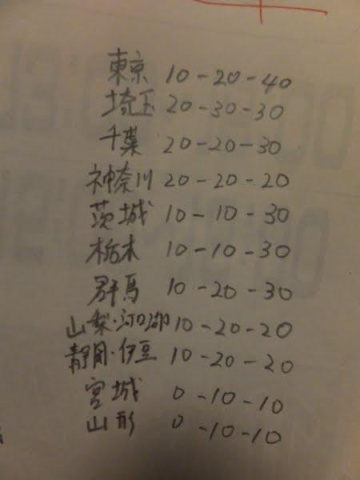 東京 10-20-40
埼玉 20-30-30
千葉 20-20-30
神奈川 20-20-20
茨城 10-10-30
栃木 10-10-30
群馬 10-20-30
山梨・河口湖 10-20-20
静岡・伊豆 10-20-20
宮城 0-10-10
山形 0-10-10